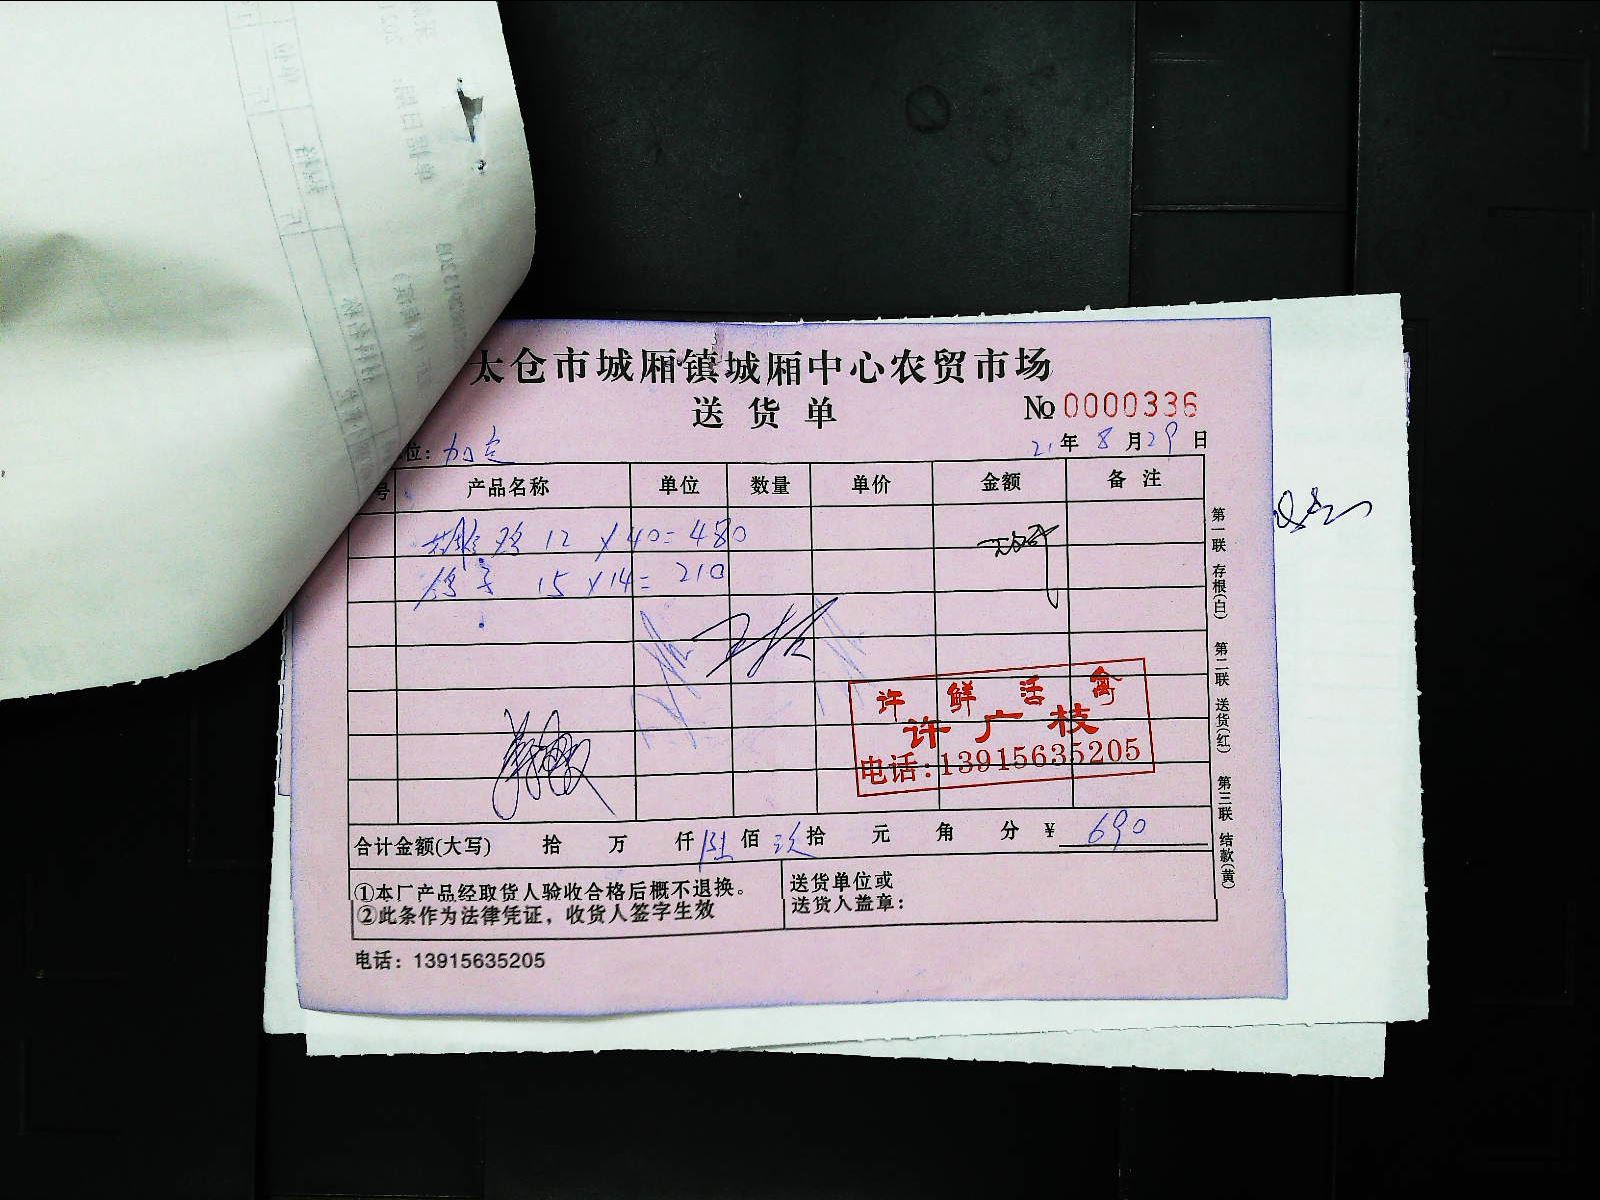 太仓市城厢镇城厢中心农贸市场
送货单
№ 0000336
位：加定 21年8月29日
号 产品名称 单位 数量 单价 金额 备注
鸡 12 × 40 = 480
鸽子 15 × 14 = 210
许鲜活禽
许广枝
电话:13915635205
合计金额(大写) 拾 万 仟 陆佰 玖拾 元 角 分 ¥ 690
①本厂产品经取货人验收合格后概不退换。
②此条作为法律凭证，收货人签字生效
送货单位或
送货人盖章：
电话：13915635205
第一联 存根(白) 第二联 送货(红) 第三联 结款(黄)